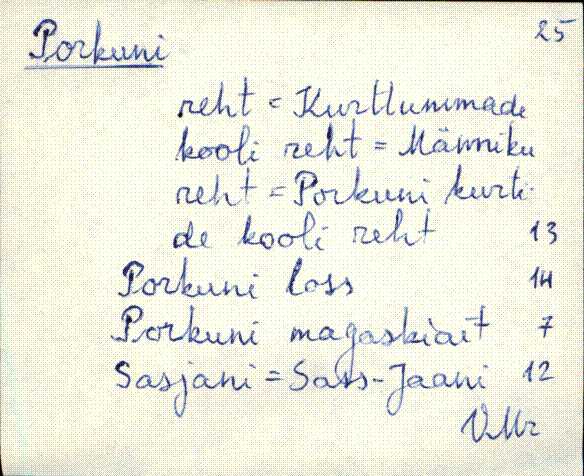 Porkuni 25
reht = Kurttummade
kooli reht = Männiku
reht = Porkuni kurti-
de kooli reht 13
Porkuni loss 14
Porkuni magaskiait 7
Sasjani = Sass-Jaani 12
VMr